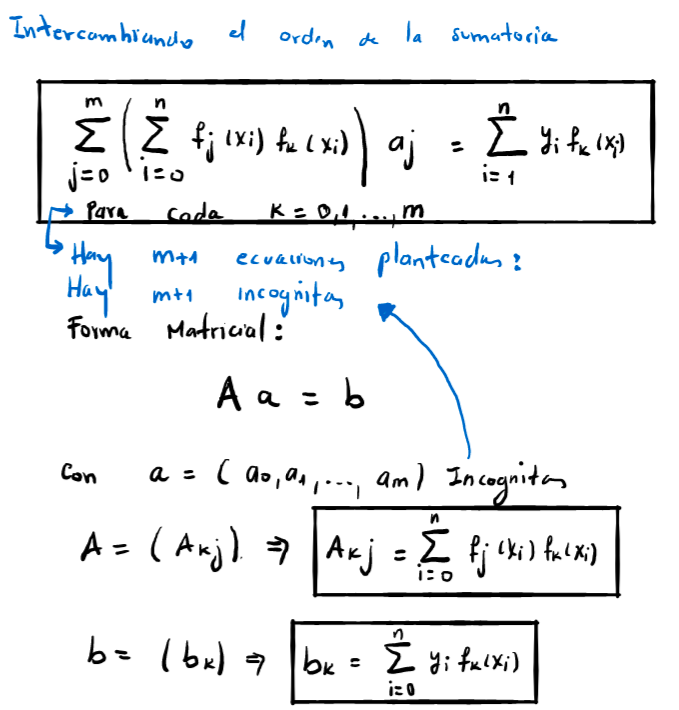 Intercambiando el orden de la sumatoria
m∑j=0 ( n∑i=0 fj(xi) fk(xi) ) aj = n∑i=1 yi fk(xi)
→ Para cada k = 0,1,...,m
→ Hay m+1 ecuaciones planteadas:
Hay m+1 incognitas
Forma Matricial:
A a = b
Con a = (a0, a1, ..., am) Incognitas
A = (Akj). ⇒ Akj = n∑i=0 fj(xi) fk(xi)
b = (bk) ⇒ bk = n∑i=0 yi fk(xi)